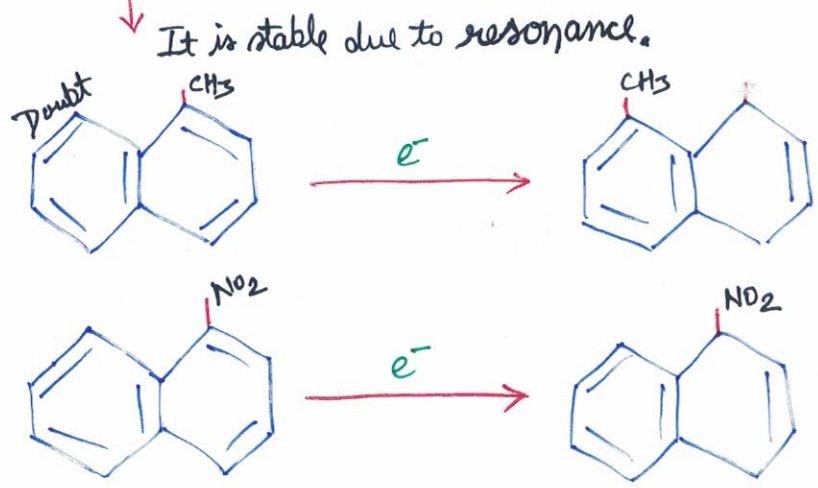 It is stable due to resonance.
Doubt
CH3
e-
CH3
NO2
e-
NO2